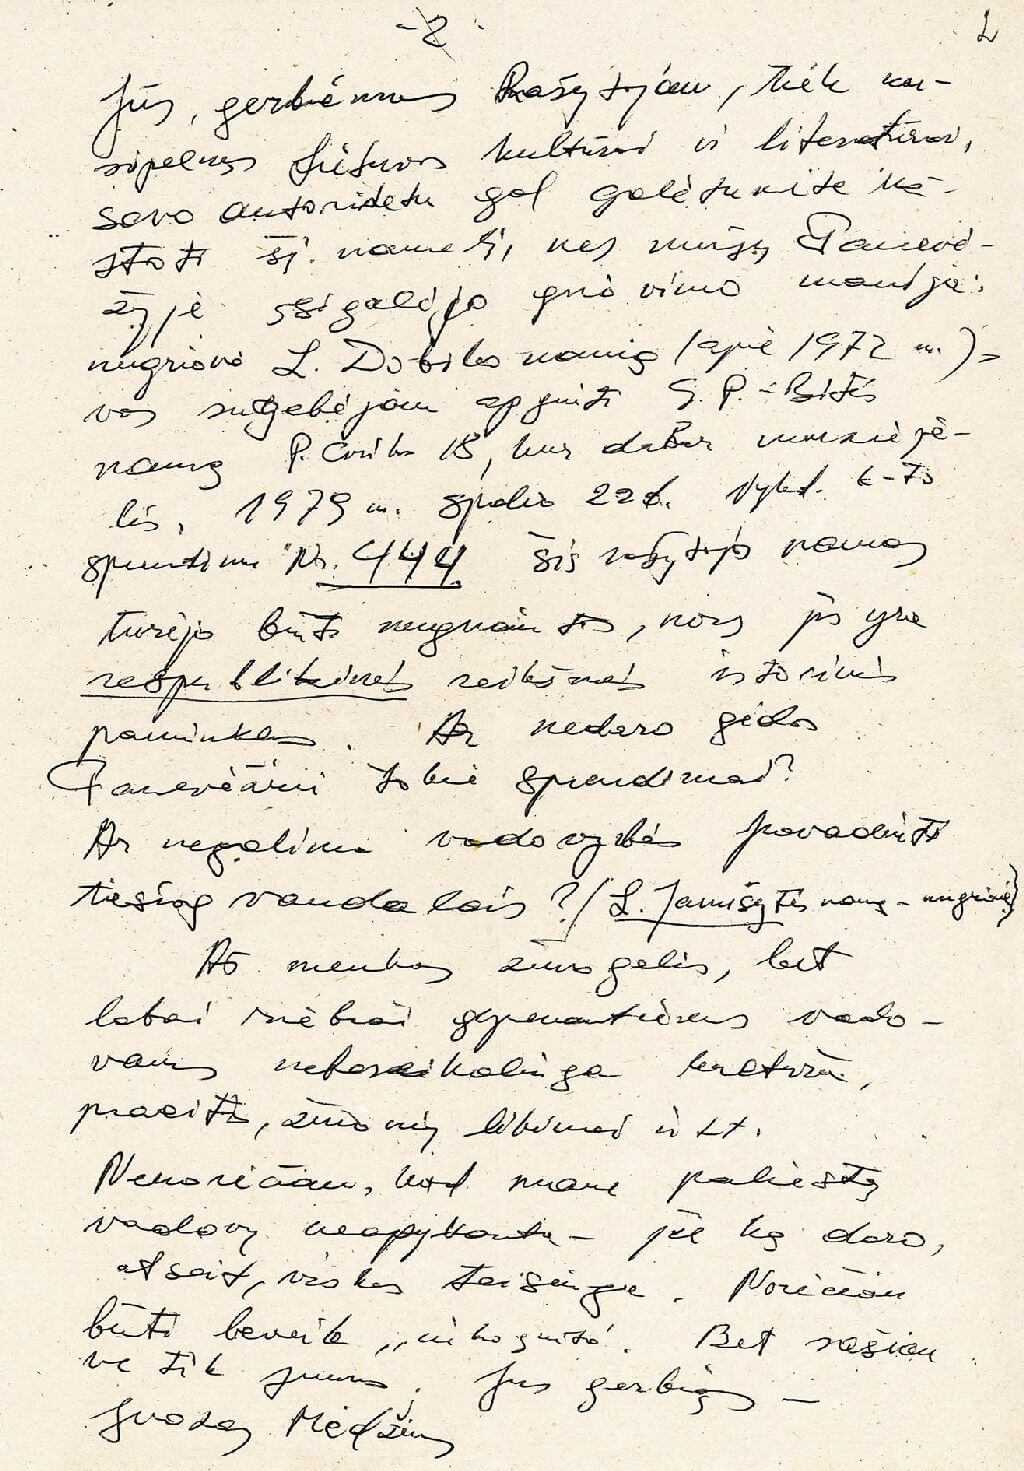 -2- 2
Jūs, gerbiamas Rašytojau, tiek nu-
sipelnęs Lietuvos kultūrai ir literatūrai,
savo autoritetu gal galėtumėte
šį namelį, nes mūsų Panevė-
žyje įsigalėjo griovimo manija:
nugriovė L. Dobilo namą (apie 1972 m.)
vos sugebėjom apginti G. P.-Bitės
namą P. Cvirkos 18, kur dabar muziejė-
lis. 1979 m. spalio 22 d. Vykd. k-to
sprendimu Nr. 444 šis rašytojo namas
turėjo būti nugriautas, nors jis yra
respublikinės reikšmės istorinis
paminklas. Ar nedaro gėdos
Panevėžiui tokie sprendimai?
Ar negalima vadovybės pavadinti
tiesiog vandalais? (L. Janušytės namą - nugriovė)
Aš menkas žmogelis, bet
labai riebiai gyvenantiems vado-
vams nebereikalinga kultūra,
praeitis, žmonių likimai ir t.t.
Nenorėčiau, kad mane paliestų
vadovų neapykanta - jie ką daro,
atseit, viskas teisinga. Norėčiau
būti beveik „inkognito". Bet rašiau
tik Jums. Jus gerbiąs -
Juozas